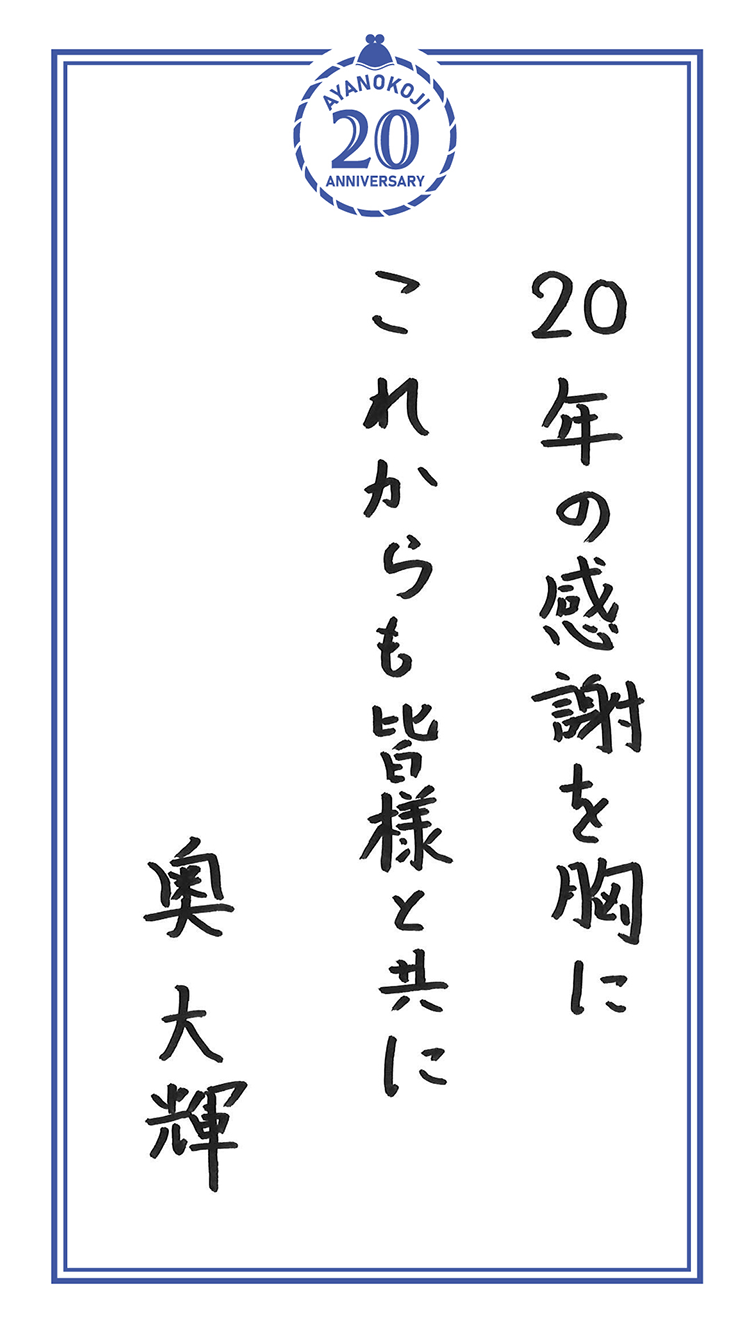 AYANOKOJI
20
ANNIVERSARY
20年の感謝を胸に
これからも皆様と共に
奥 大輝